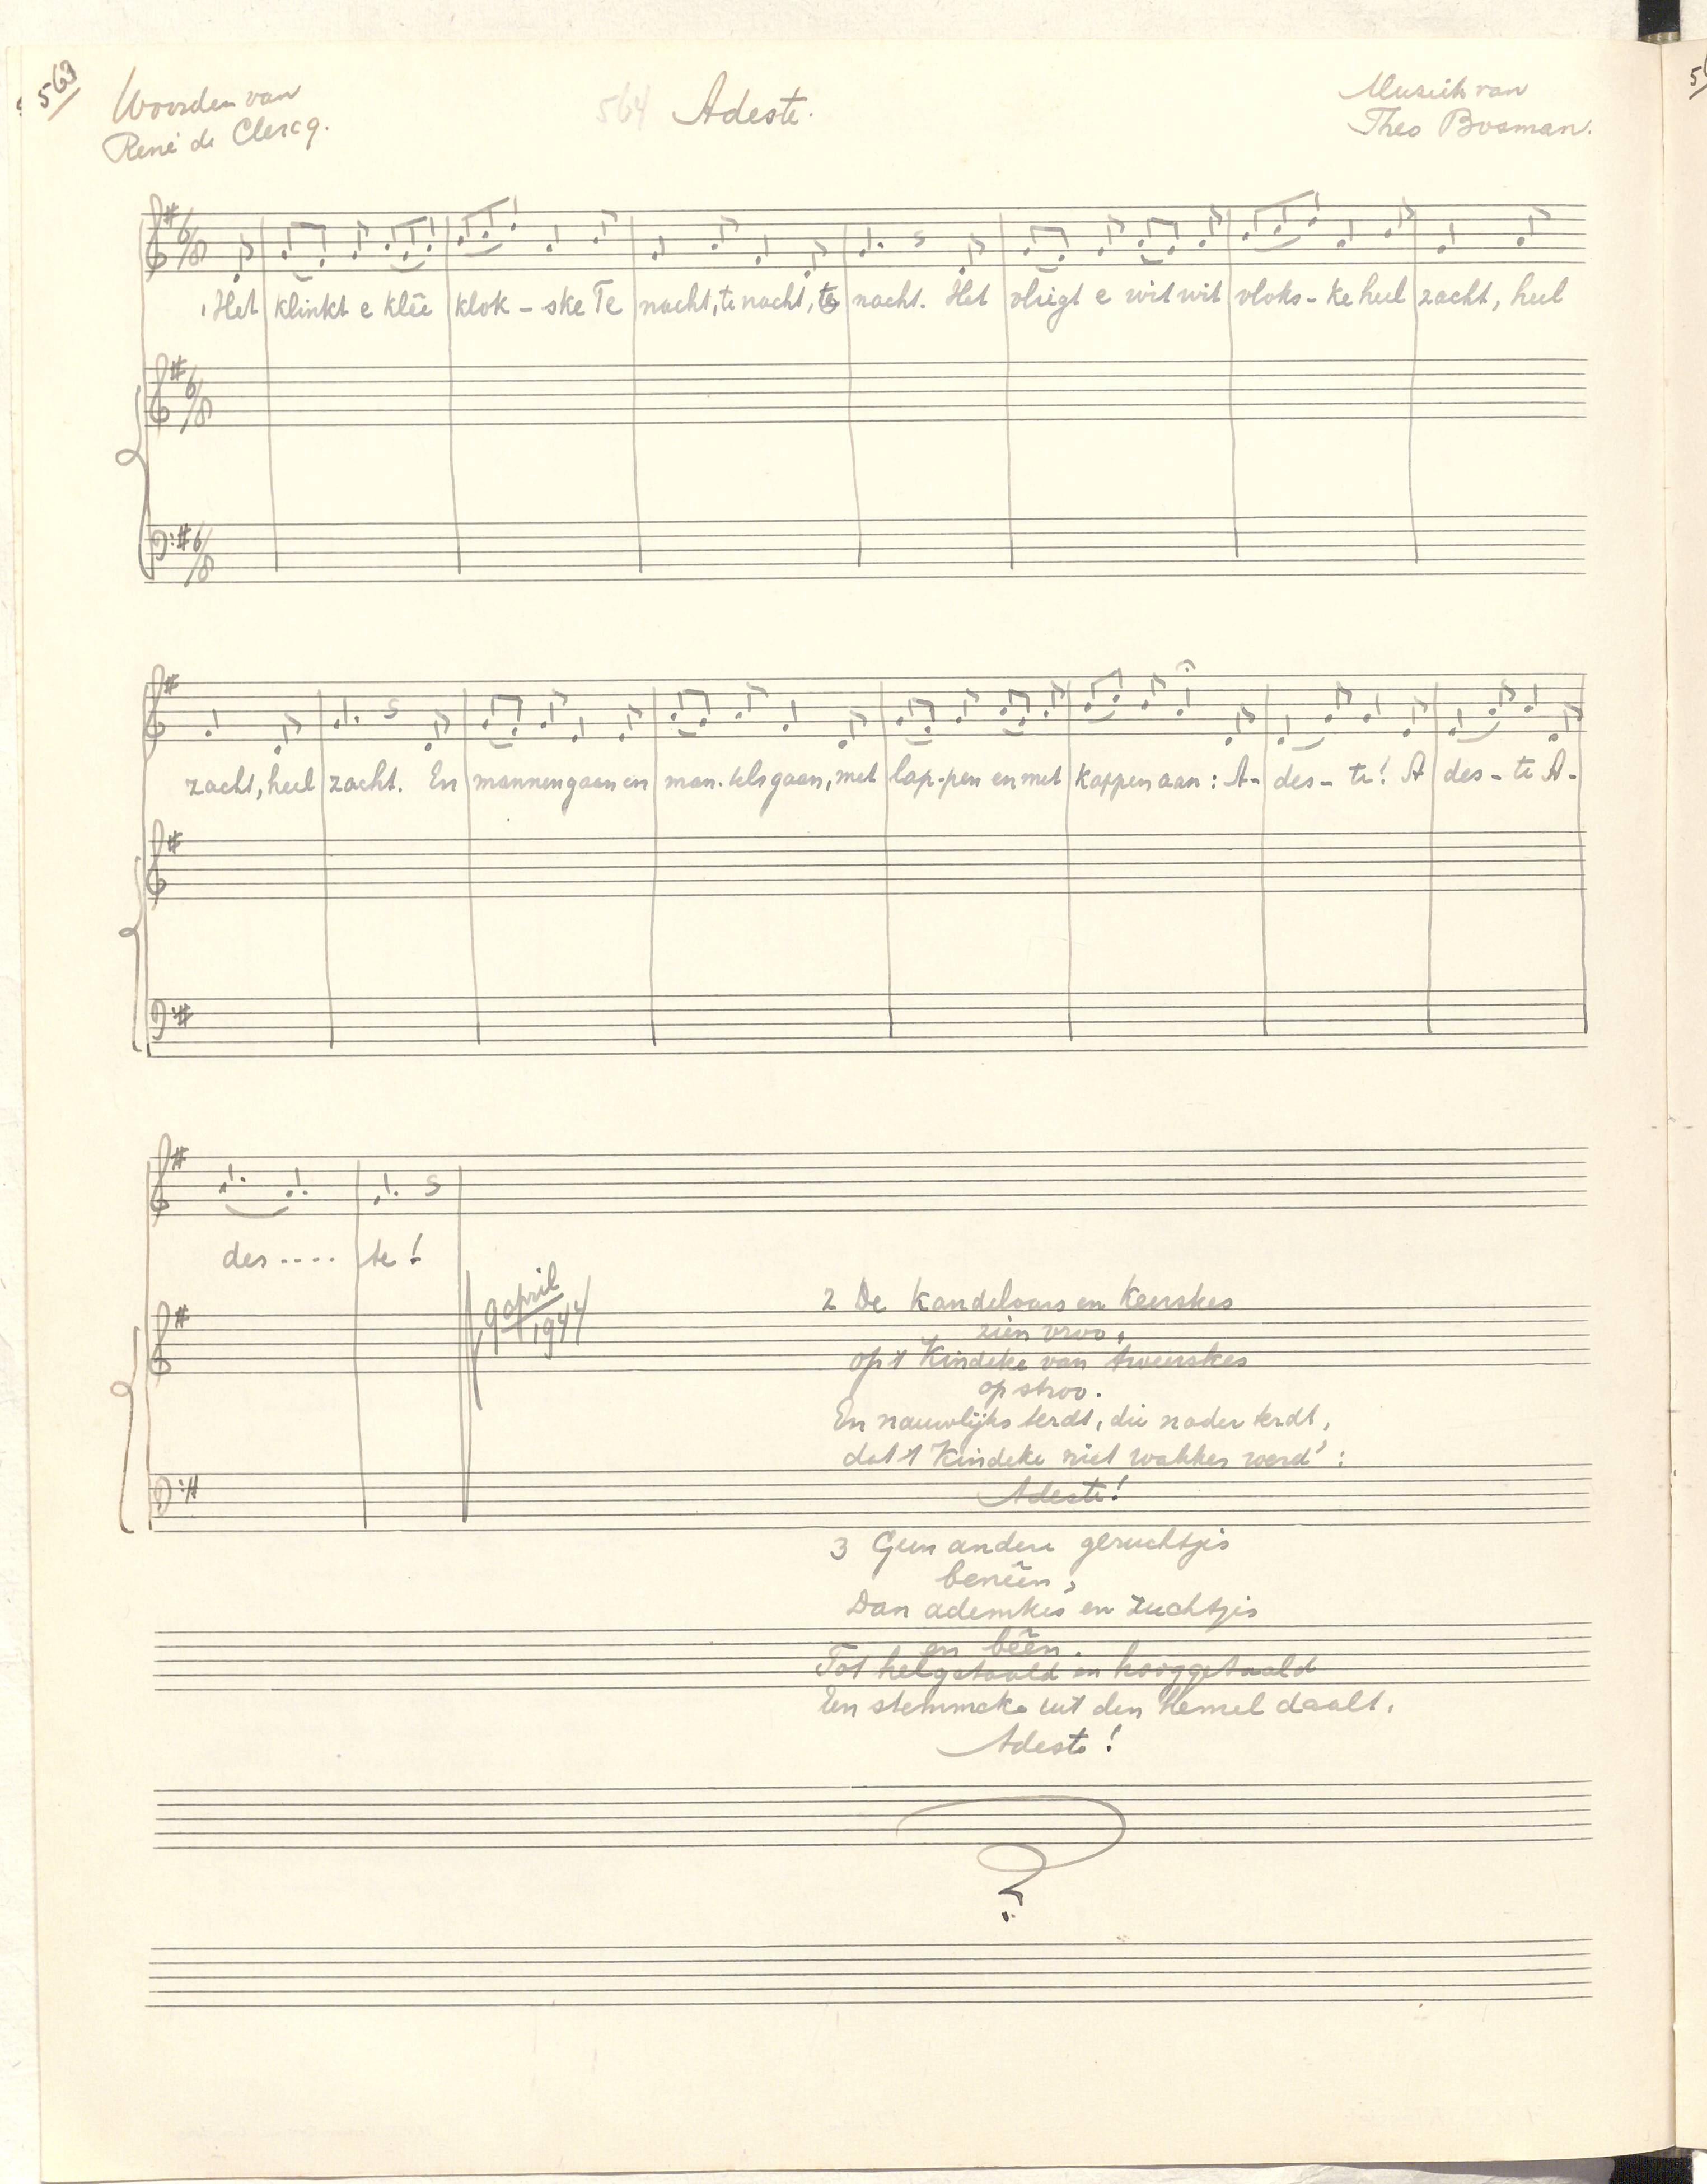 563
Woorden van
René de Clercq.
564 Adeste.
Muziek van
Theo Bosman.
6/8
Het klinkt e klēē klok - ske Te nacht, te nacht, te nacht. Het vliegt e wit wit vloks - ke heel zacht, heel
6/8
6/8
zacht, heel zacht. En mannen gaan en man - tels gaan, met lap - pen en met kappen aan : A - des - te! A des - te A -
des .... te!
9 april
1944
2 De kandelaars en keerskes
zien vroo,
op 't Kindeke van tweerskes
op stroo.
En nauwlijks terdt, die nader terdt,
dat 't Kindeke niet wakker werd' :
Adeste!
3 Geen andere geruchtjes
benēēn,
Dan ademkes en zuchtjes
en bēēn.
Tot helgestaald en hooggetaald
Een stemmeke uit den Hemel daalt.
Adeste!